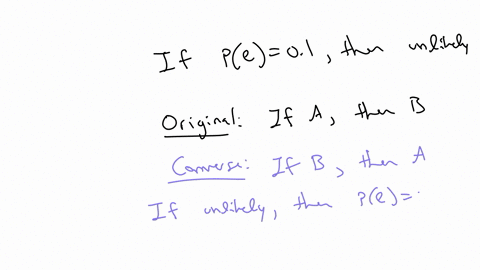 If P(e)=0.1, then unlikely
Original: If A, then B
Converse: If B, then A
If unlikely, then P(e)=.